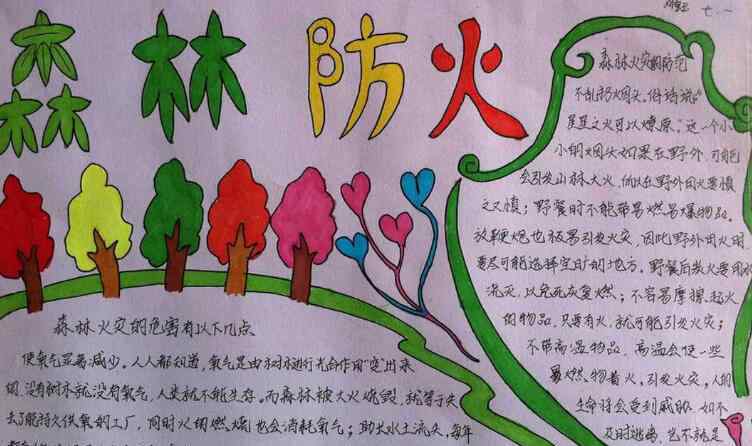 森林防火
七.一
森林火灾的防范
不乱扔烟头。俗话说“
星星之火可以燎原。”这一个小
小的烟头如果在野外,可能
会引发山林大火,所以在野外用火要慎
之又慎;野餐时不能带易燃易爆物品。
放鞭炮也极易引发火灾,因此野外用火时
要尽可能选择空旷的地方。野餐后教火要用水
浇灭,以免死灰复燃;不容易摩擦起火
的物品,只要有火,就可能引发火灾;
不带高温物品,高温会使一些
易燃物着火,引发火灾,人的
生命将会受到威胁.如不
及时逃离,岂不就是
森林火灾的危害有以下几点
使氧气显著减少。人人都知道,氧气是由树木进行光合作用“变”出来
的.没有树木就没有氧气,人类就不能生存。而森林被大火烧毁,就等于失
去了能持久供氧的工厂,同时火的燃烧也会消耗氧气;助长水土流失,每年